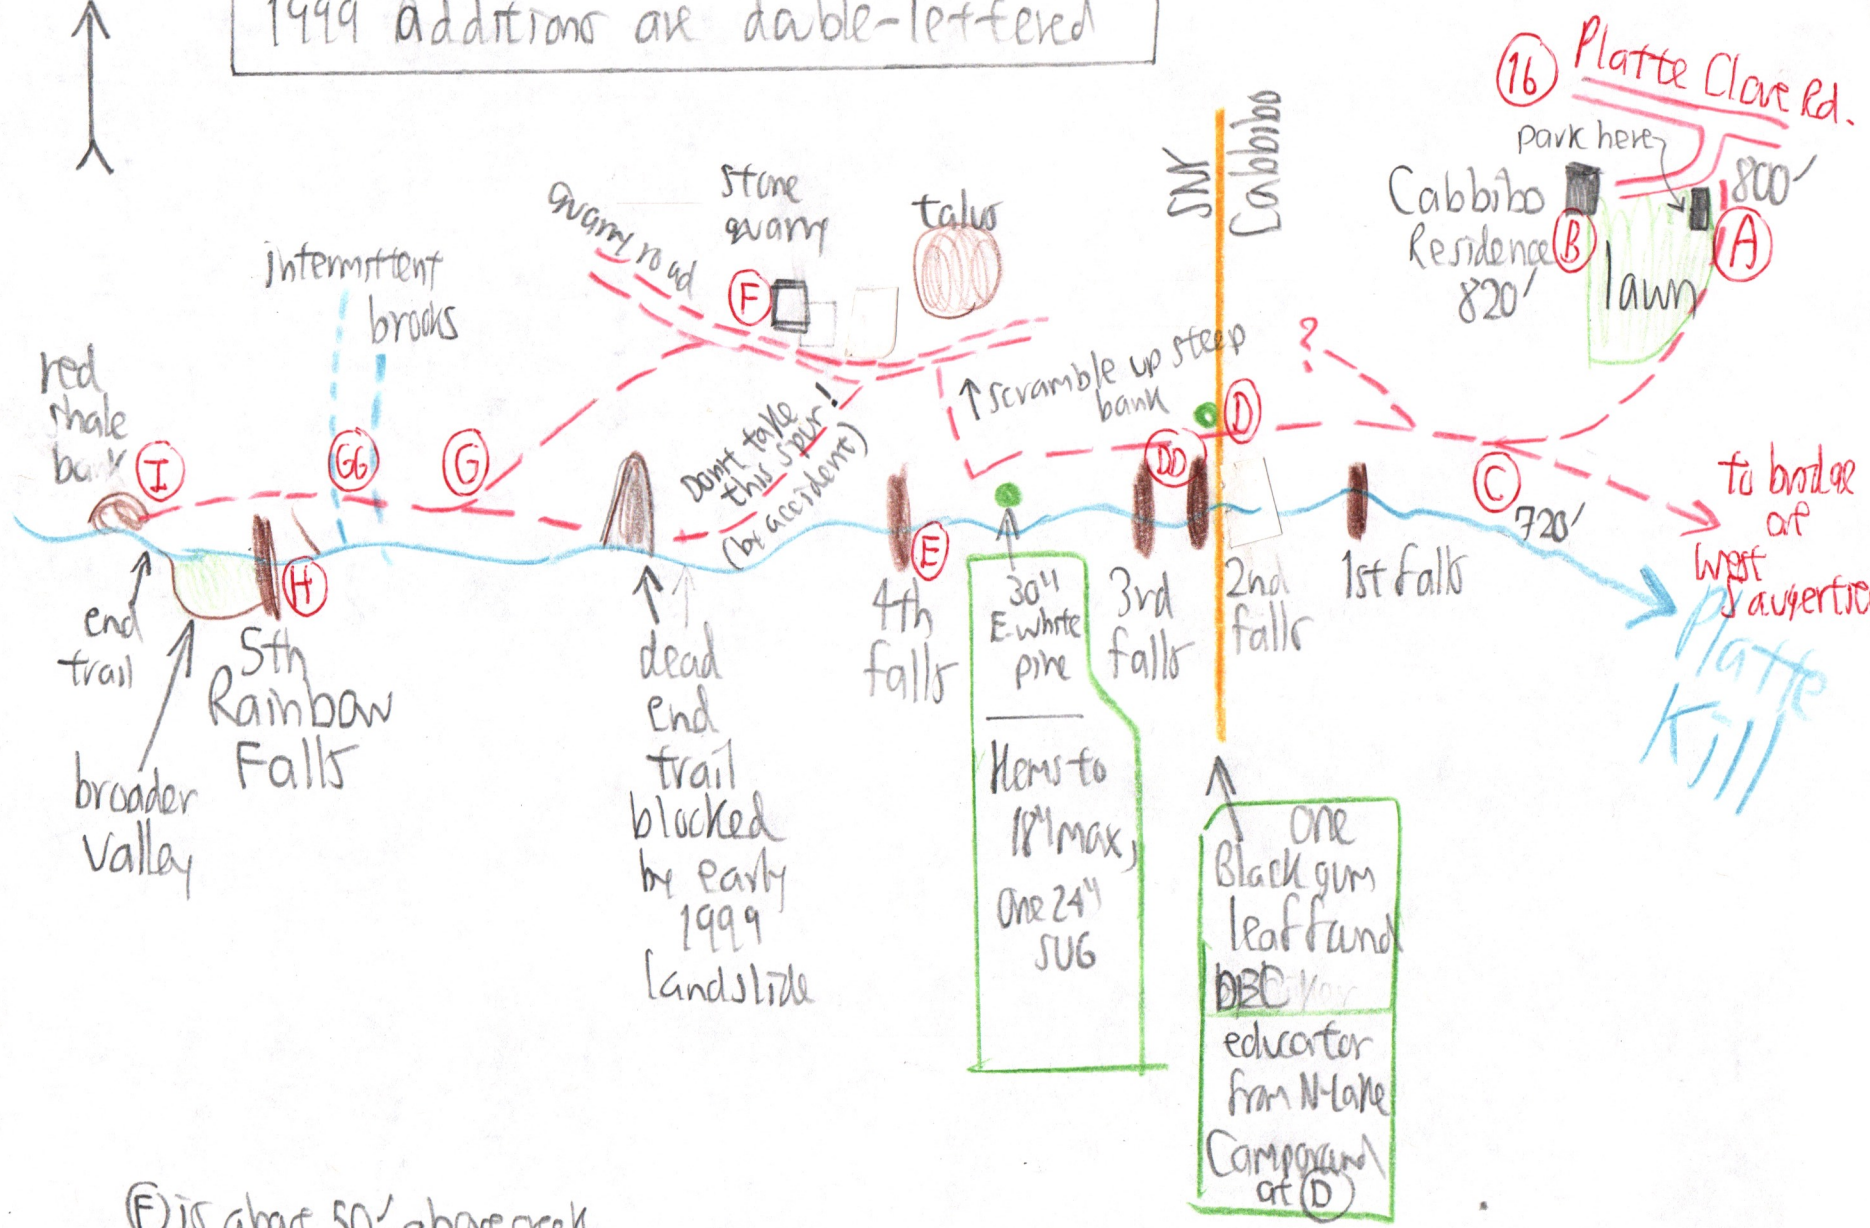 1999 additions are double-lettered
16
Platte Clove Rd.
park here
800'
Cabbibo
Residence
820'
B
A
lawn
SNY
Cabbibo
stone
quarry
talus
quarry road
F
intermittent
brooks
red
shale
bank
I
GG
G
Don't take
this spur!
(by accident)
↑ scramble up steep
bank
?
D
DD
C
720'
to bridge
at
West
Saugerties
Platte
Kill
E
H
end
trail
5th
Rainbow
Falls
broader
valley
dead
end
trail
blocked
by early
1999
landslide
4th
falls
30"
E. white
pine
Hems to
18" max,
One 24"
SUG
3rd
falls
2nd
falls
1st falls
one
Black gum
leaf found
educator
from N-Lake
Campground
at D
F is about 50' above creek